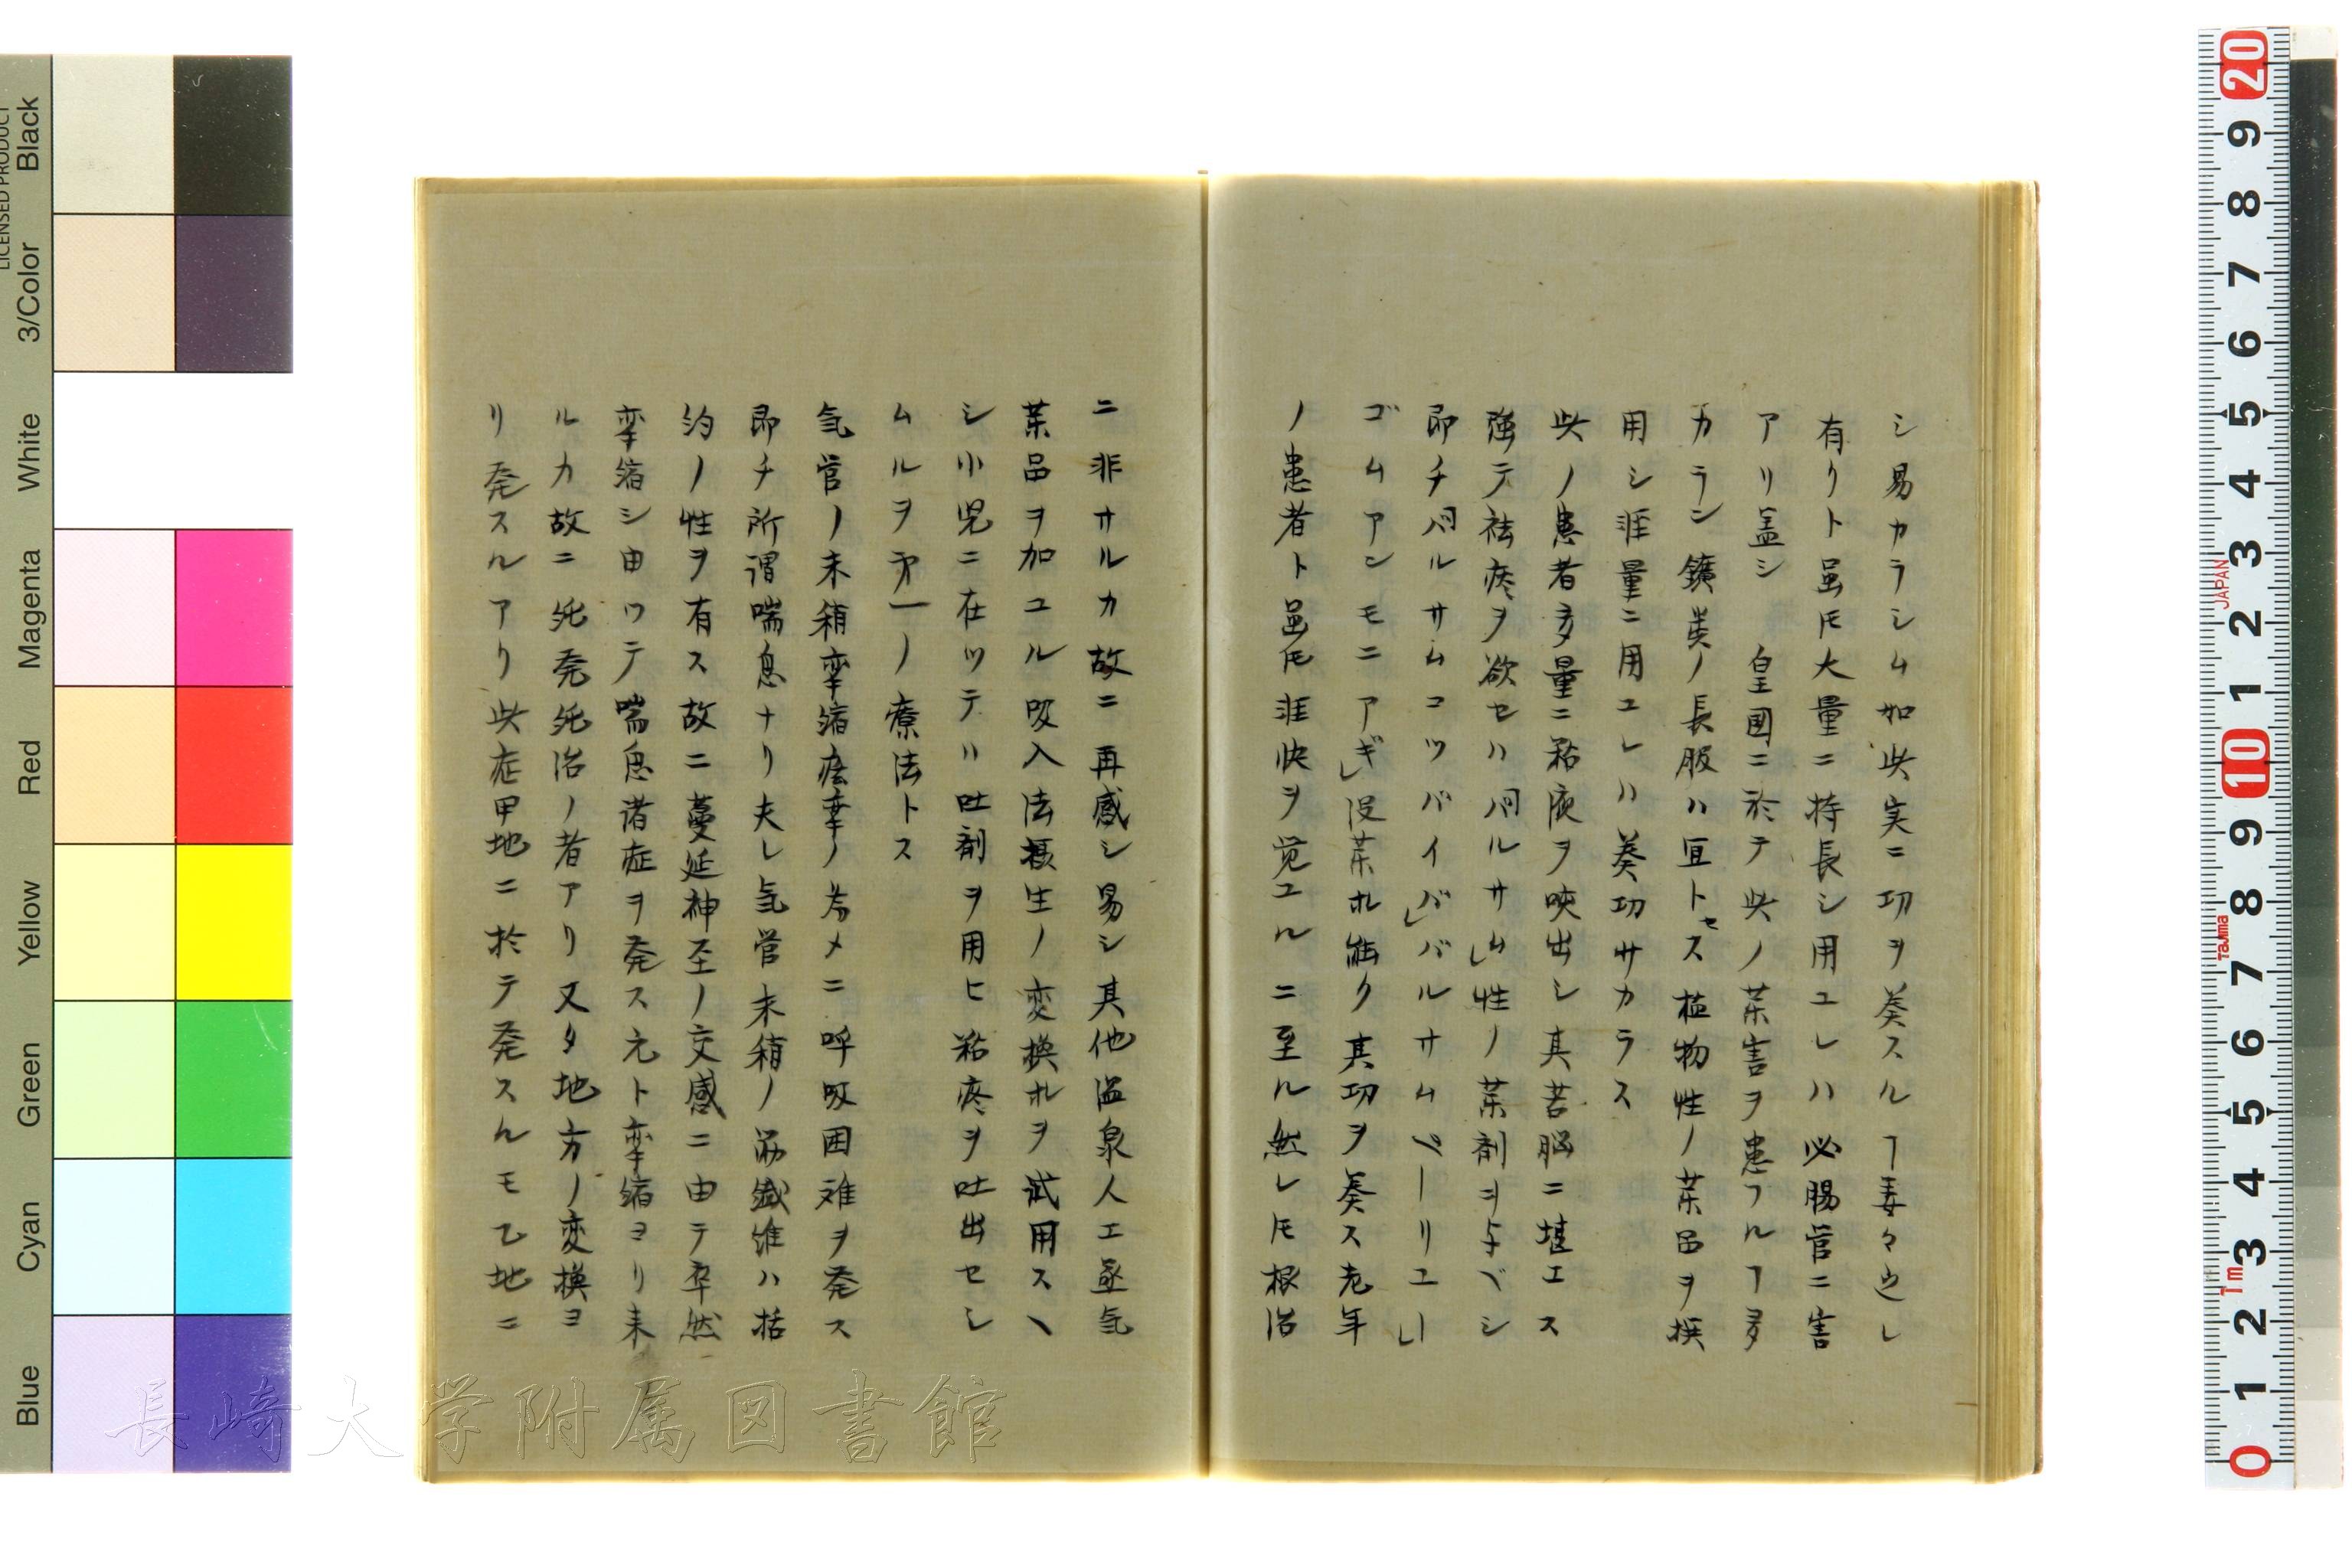 シ易カラシム如此実ニ功ヲ奏スルヿ毎々之レ
有リト虽𪜈大量ニ持長シ用ユレハ必腸管ニ害
アリ盖シ　皇國ニ於テ此ノ薬害ヲ患フルヿ多
カラン鑛类ノ長服ハ宜トセス植物性ノ薬品ヲ撰
用シ涯量ニ用ユレハ奏功サカラス
此ノ患者多量ニ粘液ヲ咳出シ其苦脳ニ堪エス
強テ祛痰ヲ欲セハ「バルサム」性ノ薬剤ヲ与ベシ
即チ「バルサムコツバイバ」「バルサムペーリユ」
ゴムアンモニアギ」没薬ホ能ク其功ヲ奏ス老年
ノ患者ト虽𪜈涯快ヲ覚ユルニ至ル然レ𪜈根治
ニ非サルカ故ニ再感シ易シ其他温泉人工蒸気
薬品ヲ加ユル吸入法摂生ノ変換ホヲ試用スヘ
シ小児ニ在ツテハ吐剤ヲ用ヒ粘痰ヲ吐出セシ
ムルヲ㐧一ノ療法トス
気管ノ末稍攣縮痙挛ノ為メニ呼吸困难ヲ発ス
即チ所謂喘息ナリ夫レ気管末稍ノ筋繊維ハ括
約ノ性ヲ有ス故ニ蔓延神至ノ交感ニ由テ卒然
攣縮シ由ツテ喘息诸症ヲ発ス元ト攣縮ヨリ来
ルカ故ニ死発死治ノ者アリ又タ地方ノ変換ヨ
リ発スルアリ此症甲地ニ於テ発スルモ乙地ニ
長崎大学附属図書館
LICENSED PRODUCT
Black
3/Color
White
Magenta
Red
Yellow
Green
Cyan
Blue
20
9
8
7
6
5
4
3
2
1
10
9
8
7
6
5
4
3
2
1
0
JAPAN
Tajima
1m